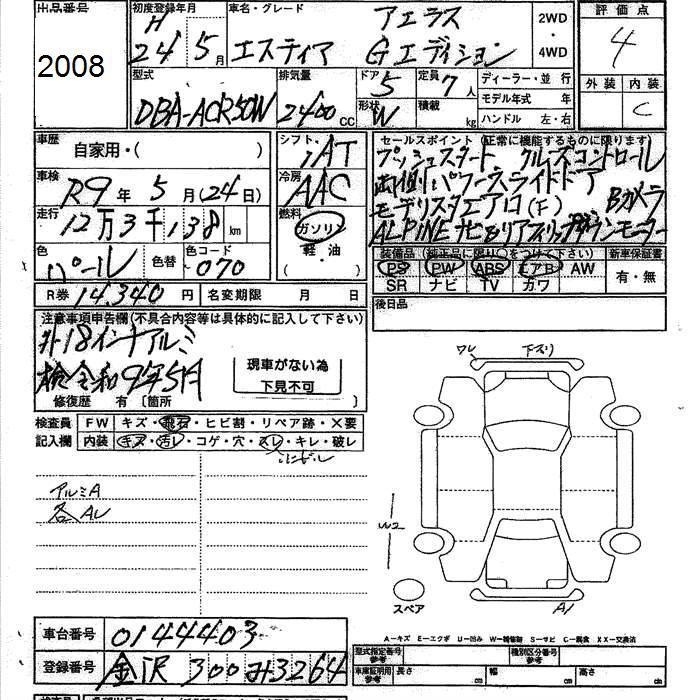 出品番号 初度登録年月 車名・グレード 評価点
2008 H24年5月 エスティマ アエラス Gエディション 2WD・4WD 4
型式 排気量 ドア 5 定員 7人 ディーラー・並行 外装 内装
DBA-ACR50W 2400cc 形状 W 積載 kg モデル年式 年 C
ハンドル 左・右
車歴 自家用・( ) シフト AT セールスポイント (正常に機能するものに限ります)
プッシュスタート クルーズコントロール
車検 R9年5月(24日) 冷房 AAC 両側パワースライドドア
走行 12万3千138km 燃料 ガソリン 軽・油 モデリスタエアロ(F) Bカメラ
ALPINEナビ&リアフリップダウンモニター
色 パール 色替 色コード 070 装備品 (純正品に限り○をつけ下さい) 新車保証書
PS PW ABS エアB AW 有・無
SR ナビ TV カワ
R券 14,340円 名変期限 月 日 後日品
注意事項申告欄(不具合内容等は具体的に記入して下さい)
外18インチアルミ
検令和9年5月
現車がない為
下見不可
修復歴 有 〔箇所
ワレ 下スリ
検査員 FW キズ・飛石・ヒビ割・リペア跡・X要
記入欄 内装 キズ・汚レ・コゲ・穴・スレ・キレ・破レ
アルミA
各AU
W2
スペア
A1
A-キズ E-エクボ U-凹み W-補修跡 S-サビ C-腐食 XX-交換済
車台番号 0144403
型式指定番号 参考 種別区分番号 参考
登録番号 金沢 300 み 3264
車庫証明用 参考 長さ cm 幅 cm 高さ cm